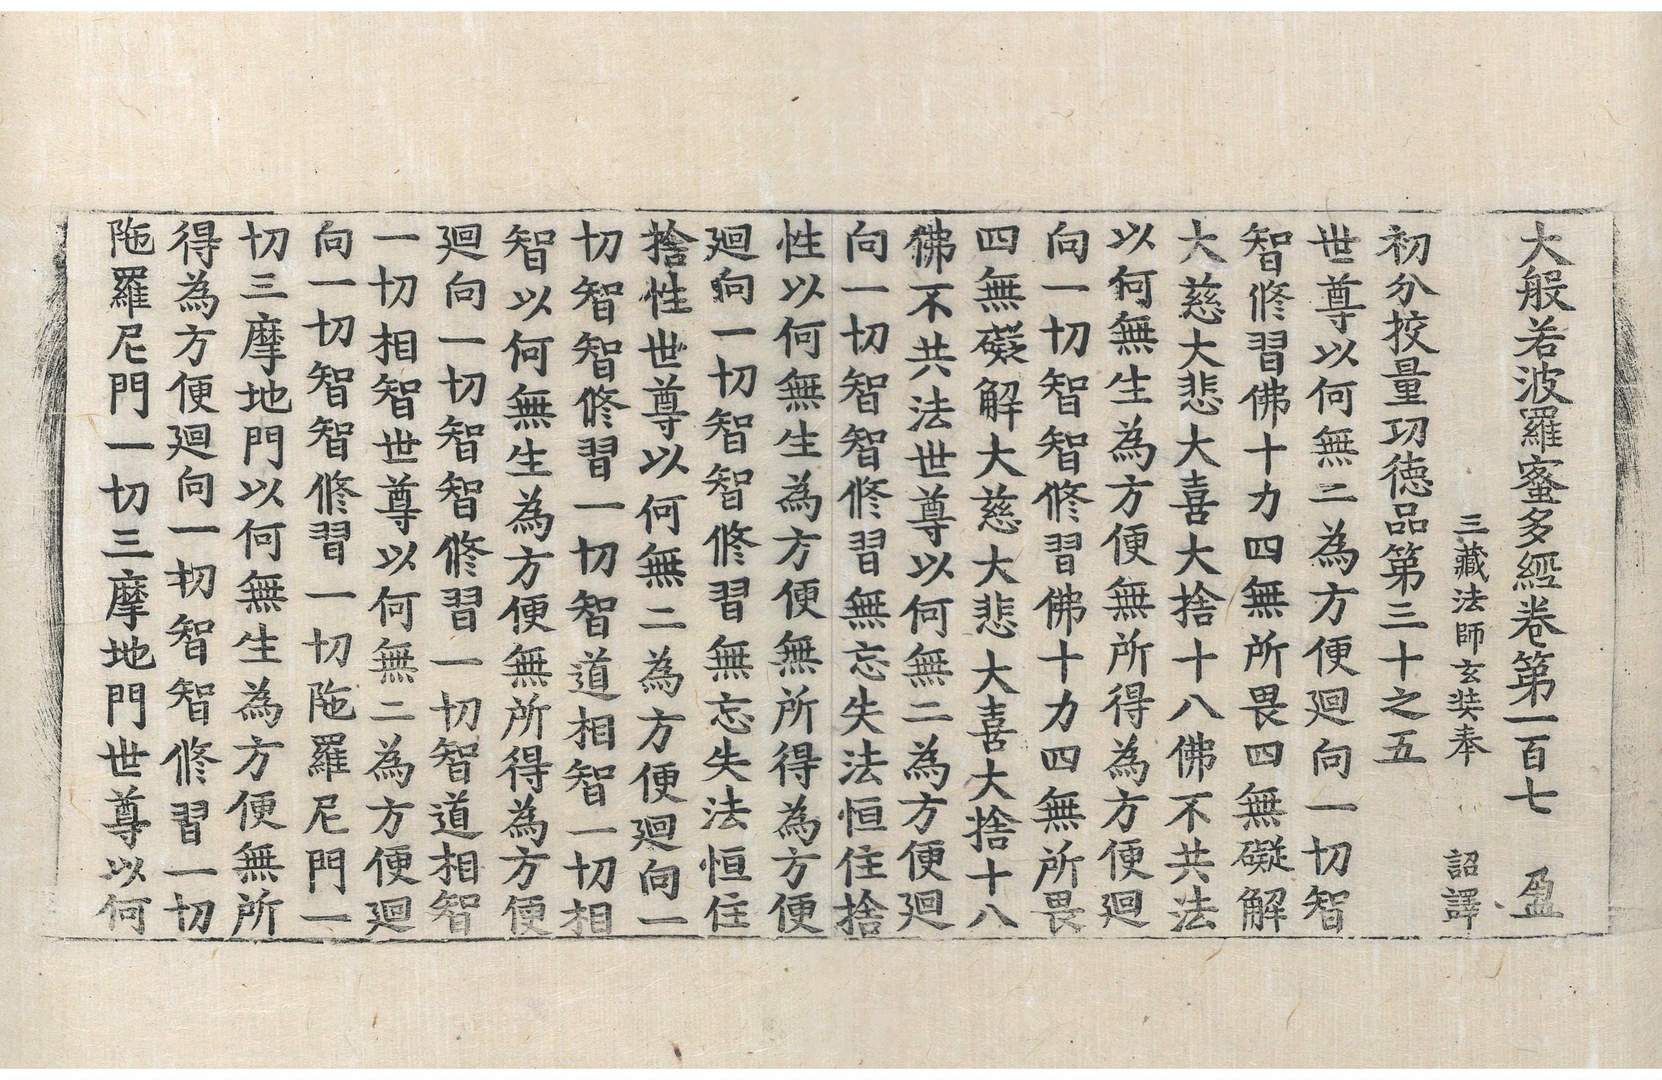 大般若波羅蜜多經卷第一百七　盈
三藏法師玄奘奉　詔譯
初分挍量功德品第三十之五
世尊以何無二為方便廻向一切智
智修習佛十力四無所畏四無礙解
大慈大悲大喜大捨十八佛不共法
以何無生為方便無所得為方便廻
向一切智智修習佛十力四無所畏
四無礙解大慈大悲大喜大捨十八
佛不共法世尊以何無二為方便廻
向一切智智修習無忘失法恒住捨
性以何無生為方便無所得為方便
廻向一切智智修習無忘失法恒住
捨性世尊以何無二為方便廻向一
切智智修習一切智道相智一切相
智以何無生為方便無所得為方便
廻向一切智智修習一切智道相智
一切相智世尊以何無二為方便廻
向一切智智修習一切陁羅尼門一
切三摩地門以何無生為方便無所
得為方便廻向一切智智修習一切
陁羅尼門一切三摩地門世尊以何